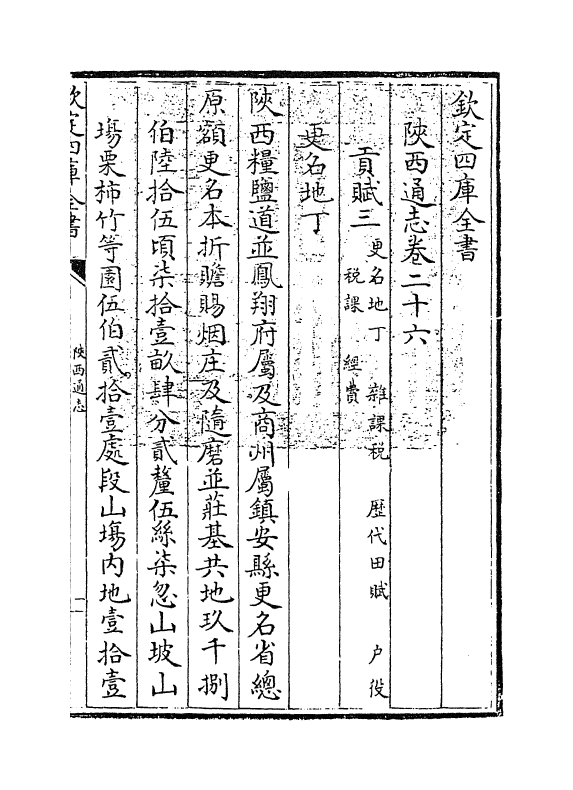 欽定四庫全書
陝西通志卷二十六
貢賦三 更名地丁 雜課税 歴代田賦 户役
税課 經費
更名地丁
陝西糧鹽道並鳳翔府屬及商州屬鎮安縣更名省總
原額更名本折贍賜烟庄及隨磨並莊基共地玖千捌
伯陸拾伍頃柒拾壹畝肆分貳釐伍絲柒忽山坡山
塲栗柿竹等園伍伯貳拾壹處段山塲内地壹拾壹
欽定四庫全書
陜西通志
一